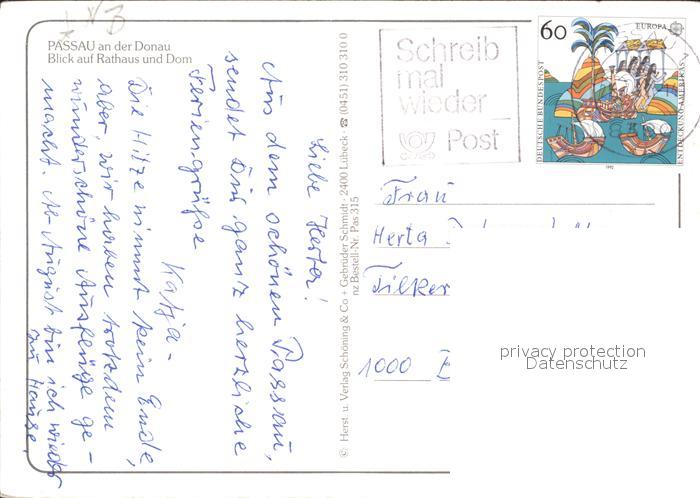 PASSAU an der Donau
Blick auf Rathaus und Dom
Liebe Herta!
Aus dem schönen Passau,
sendet Dir ganz herzliche
Feriengrüße
Katja -
Die Hitze nimmt kein Ende,
aber, wir haben trotzdem
wunderschöne Ausflüge ge-
macht. Ab August bin ich wieder
zu Hause.
© Herst. u. Verlag Schöning & Co + Gebrüder Schmidt · 2400 Lübeck · ☎ (0451) 310 310 0
nz Bestell-Nr. Pas 315
Schreib
mal
wieder
Post
60
EUROPA
DEUTSCHE BUNDESPOST
ENTDECKUNG AMERIKAS
1992
Frau
Herta
Filker
1000 B
privacy protection
Datenschutz